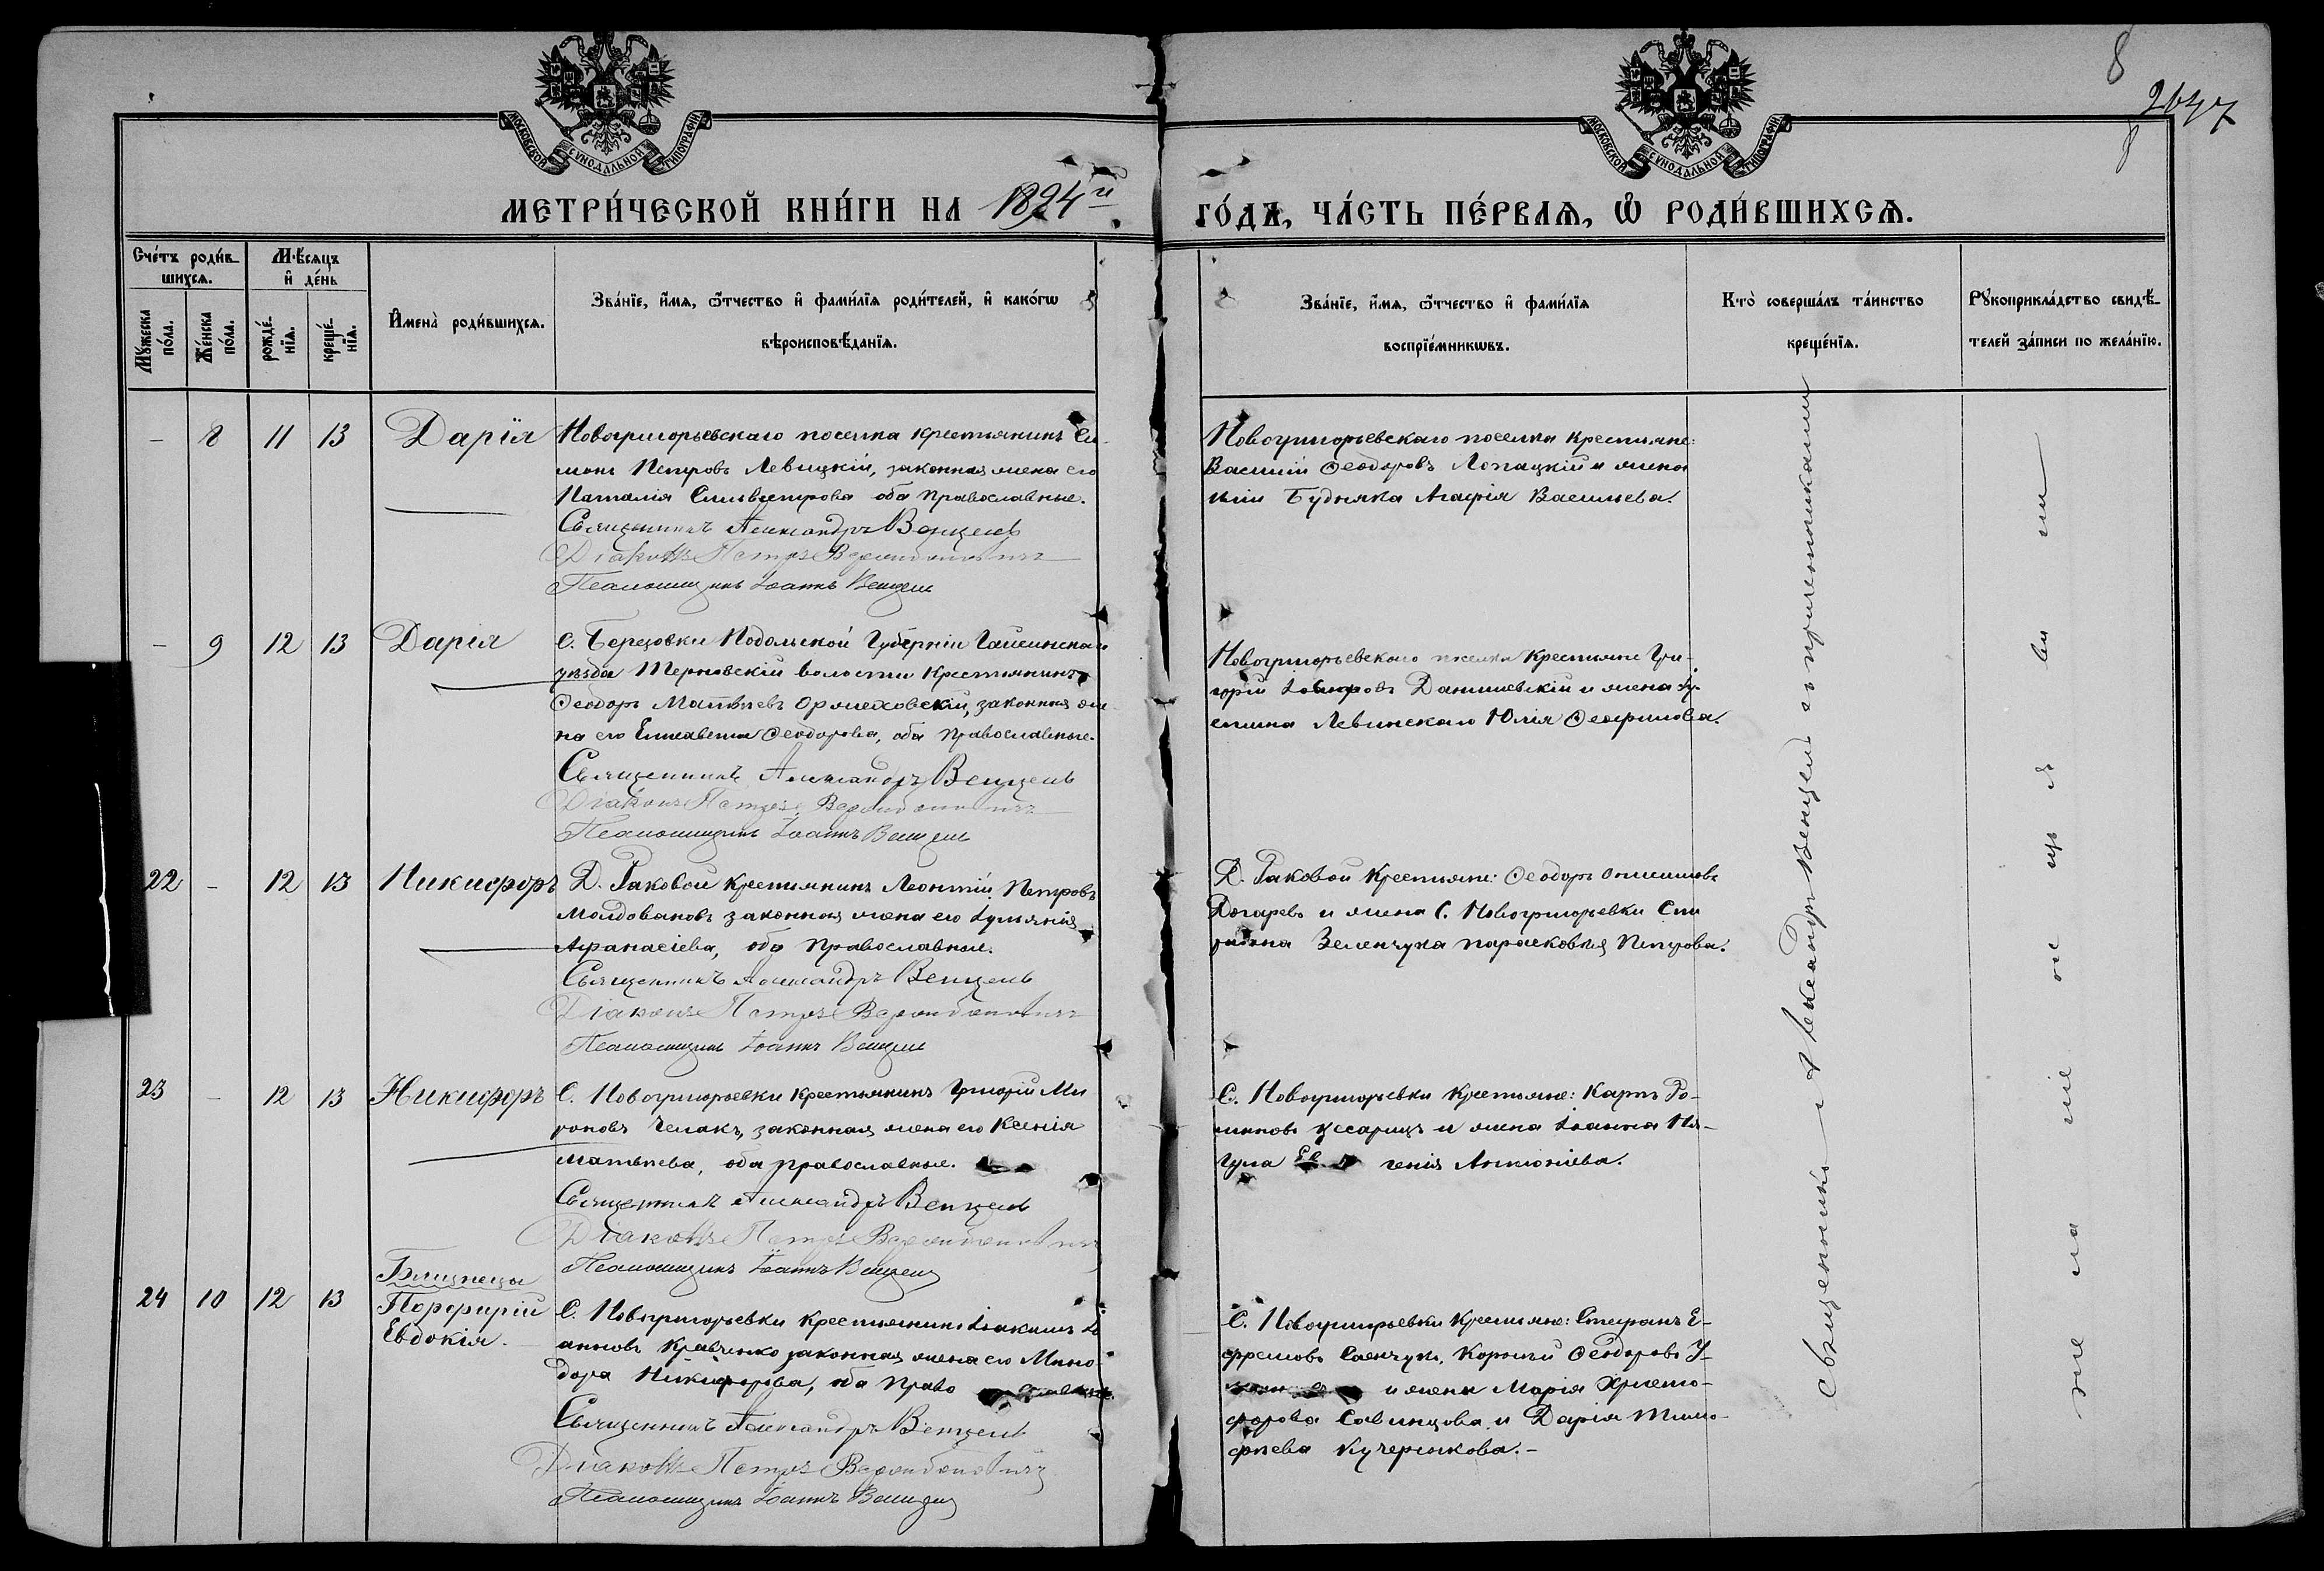 8
2647
8
МОСКОВСКОЙ СѴНОДАЛЬНОЙ ТИПОГРАФІИ
МОСКОВСКОЙ СѴНОДАЛЬНОЙ ТИПОГРАФІИ
МЕТРИ́ЧЕСКОЙ КНИ́ГИ НА 1894й ГО́ДЪ, ЧА́СТЬ ПЕ́РВАѦ, Ѽ РОДИ́ВШИХСѦ.
Сче́тъ роди́вшихсѧ.
Мꙋ́жеска по́ла.
Же́нска по́ла.
Мѣ́сяцъ и҆ де́нь
рожде́нїѧ.
креще́нїѧ.
И҆мена̀ роди́вшихсѧ.
Зва́нїе, и҆́мѧ, ѻ҆́тчество и҆ фами́лїѧ роди́телей, и҆ како́гѡ
вѣроисповѣ́данїѧ.
Зва́нїе, и҆́мѧ, ѻ҆́тчество и҆ фами́лїѧ
воспрїе́мникѡвъ.
Кто̀ соверша́лъ та́инство
креще́нїѧ.
Рꙋкоприкла́дство свидѣ́-
телей за́писи по жела́нїю.
- 8 11 13 Дарія
Новогригорьевскаго поселка крестьянинъ Си-
монъ Петровъ Левицкій, законная жена его
Наталія Сильвестрова оба православные.
Священникъ Александръ Венцель
Діаконъ Петръ
Псаломщикъ Іоаннъ Венцель
Новогригорьевскаго поселка крестьяне:
Василій Ѳеодоровъ Лопацкій и жена
Будняка Агафія Васильева.
- 9 12 13 Дарія
С. Березовки Подольской Губерніи Гайсинскаго
уѣзда Терновскій волости крестьянинъ
Ѳеодоръ Матѳіевъ Оржеховскій, законная же
на его Елисавета Ѳеодорова, оба православные.
Священникъ Александръ Венцель
Діаконъ Петръ
Псаломщикъ Іоаннъ Венцель
Новогригорьевскаго поселка крестьяне Гри-
горій Данишевскій и жена Іу-
стина Левинскаго Юлія
22 - 12 13 Никифоръ
Д. Раковой крестьянинъ Леонтій Петровъ
Молдовановъ законная жена его Іуліанія
Афанасіева, оба православные.
Священникъ Александръ Венцель
Діаконъ Петръ
Псаломщикъ Іоаннъ Венцель
Д. Раковой крестьяне: Ѳеодоръ Онисимовъ
и жена С. Новогригорьевки Спи
ридона Зеленчука Парасковія Петрова.
23 - 12 13 Никифоръ
С. Новогригорьевки крестьянинъ Григорій Ми
роновъ Чепакъ, законная жена его Ксенія
Матѳіева, оба православные.
Священникъ Александръ Венцель
Діаконъ Петръ
Псаломщикъ Іоаннъ Венцель
С. Новогригорьевки крестьяне: Карпъ Ро-
мановъ и жена Іоанна
генія Антоніева.
24 10 12 13 Близнецы
Порфирій
Евдокія.
С. Новогригорьевки крестьянинъ Іоакимъ Іо
анновъ Кравченко законная жена его Мино-
дора Никифорова, оба право
Священникъ Александръ Венцель
Діаконъ Петръ
Псаломщикъ Іоаннъ Венцель
С. Новогригорьевки крестьяне: Стефанъ Е-
фремовъ Савчукъ, Корнилій Ѳеодоровъ
и жена Марія Христо-
форова Савинцова и Дарія Тимо-
фіева Кучеренкова.-
Священникъ Александръ Венцель съ причетниками